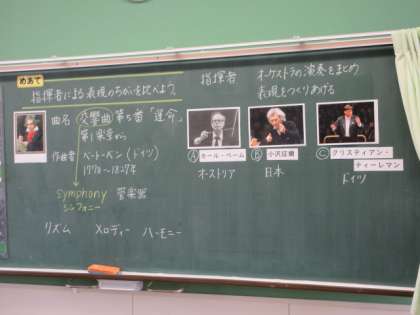 めあて
指揮者による表現のちがいを比べよう。
曲名 交響曲 第5番「運命」
第1楽章から
作曲者 ベートーベン(ドイツ)
1770〜1827年
symphony
シンフォニー
管楽器
リズム メロディー ハーモニー
指揮者 オーケストラの演奏をまとめ
表現をつくりあげる
Ⓐ カール・ベーム
オーストリア
Ⓑ 小沢征爾
日本
Ⓒ クリスティアン・
ティーレマン
ドイツ